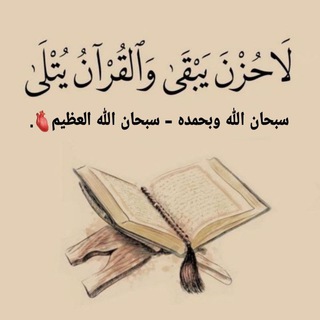 لَا حُزْنَ يَبْقَىٰ وَٱلْقُرْآنُ يُتْلَىٰ
سبحان الله وبحمده - سبحان الله العظيم🫀.